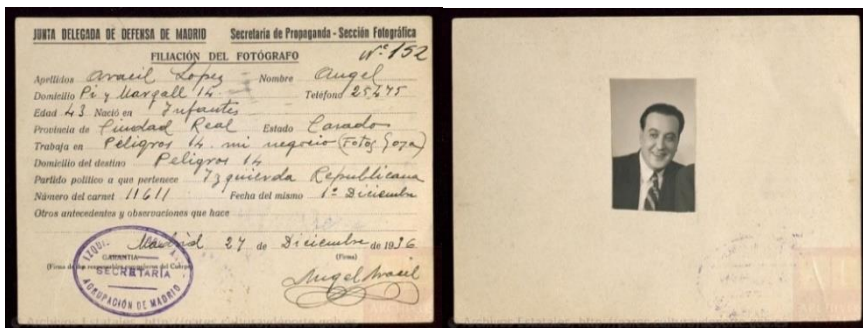 JUNTA DELEGADA DE DEFENSA DE MADRID Secretaria de Propaganda - Sección Fotográfica
FILIACIÓN DEL FOTÓGRAFO Nº 152
Apellidos Aracil Lopez Nombre Angel
Domicilio Pi y Margall 14 Teléfono 25475
Edad 43 Nació en Infantes
Provincia de Ciudad Real Estado Casado
Trabaja en Peligros 14 mi negocio (Fotos Goya)
Domicilio del destino Peligros 14
Partido político a que pertenece Izquierda Republicana
Número del carnet 11611 Fecha del mismo 1º Diciembre
Otros antecedentes y observaciones que hace
Madrid 27 de Diciembre de 1936
GARANTIA (Firma)
(Firma de los responsables
Angel Aracil
SECRETARIA
AGRUPACIÓN DE MADRID